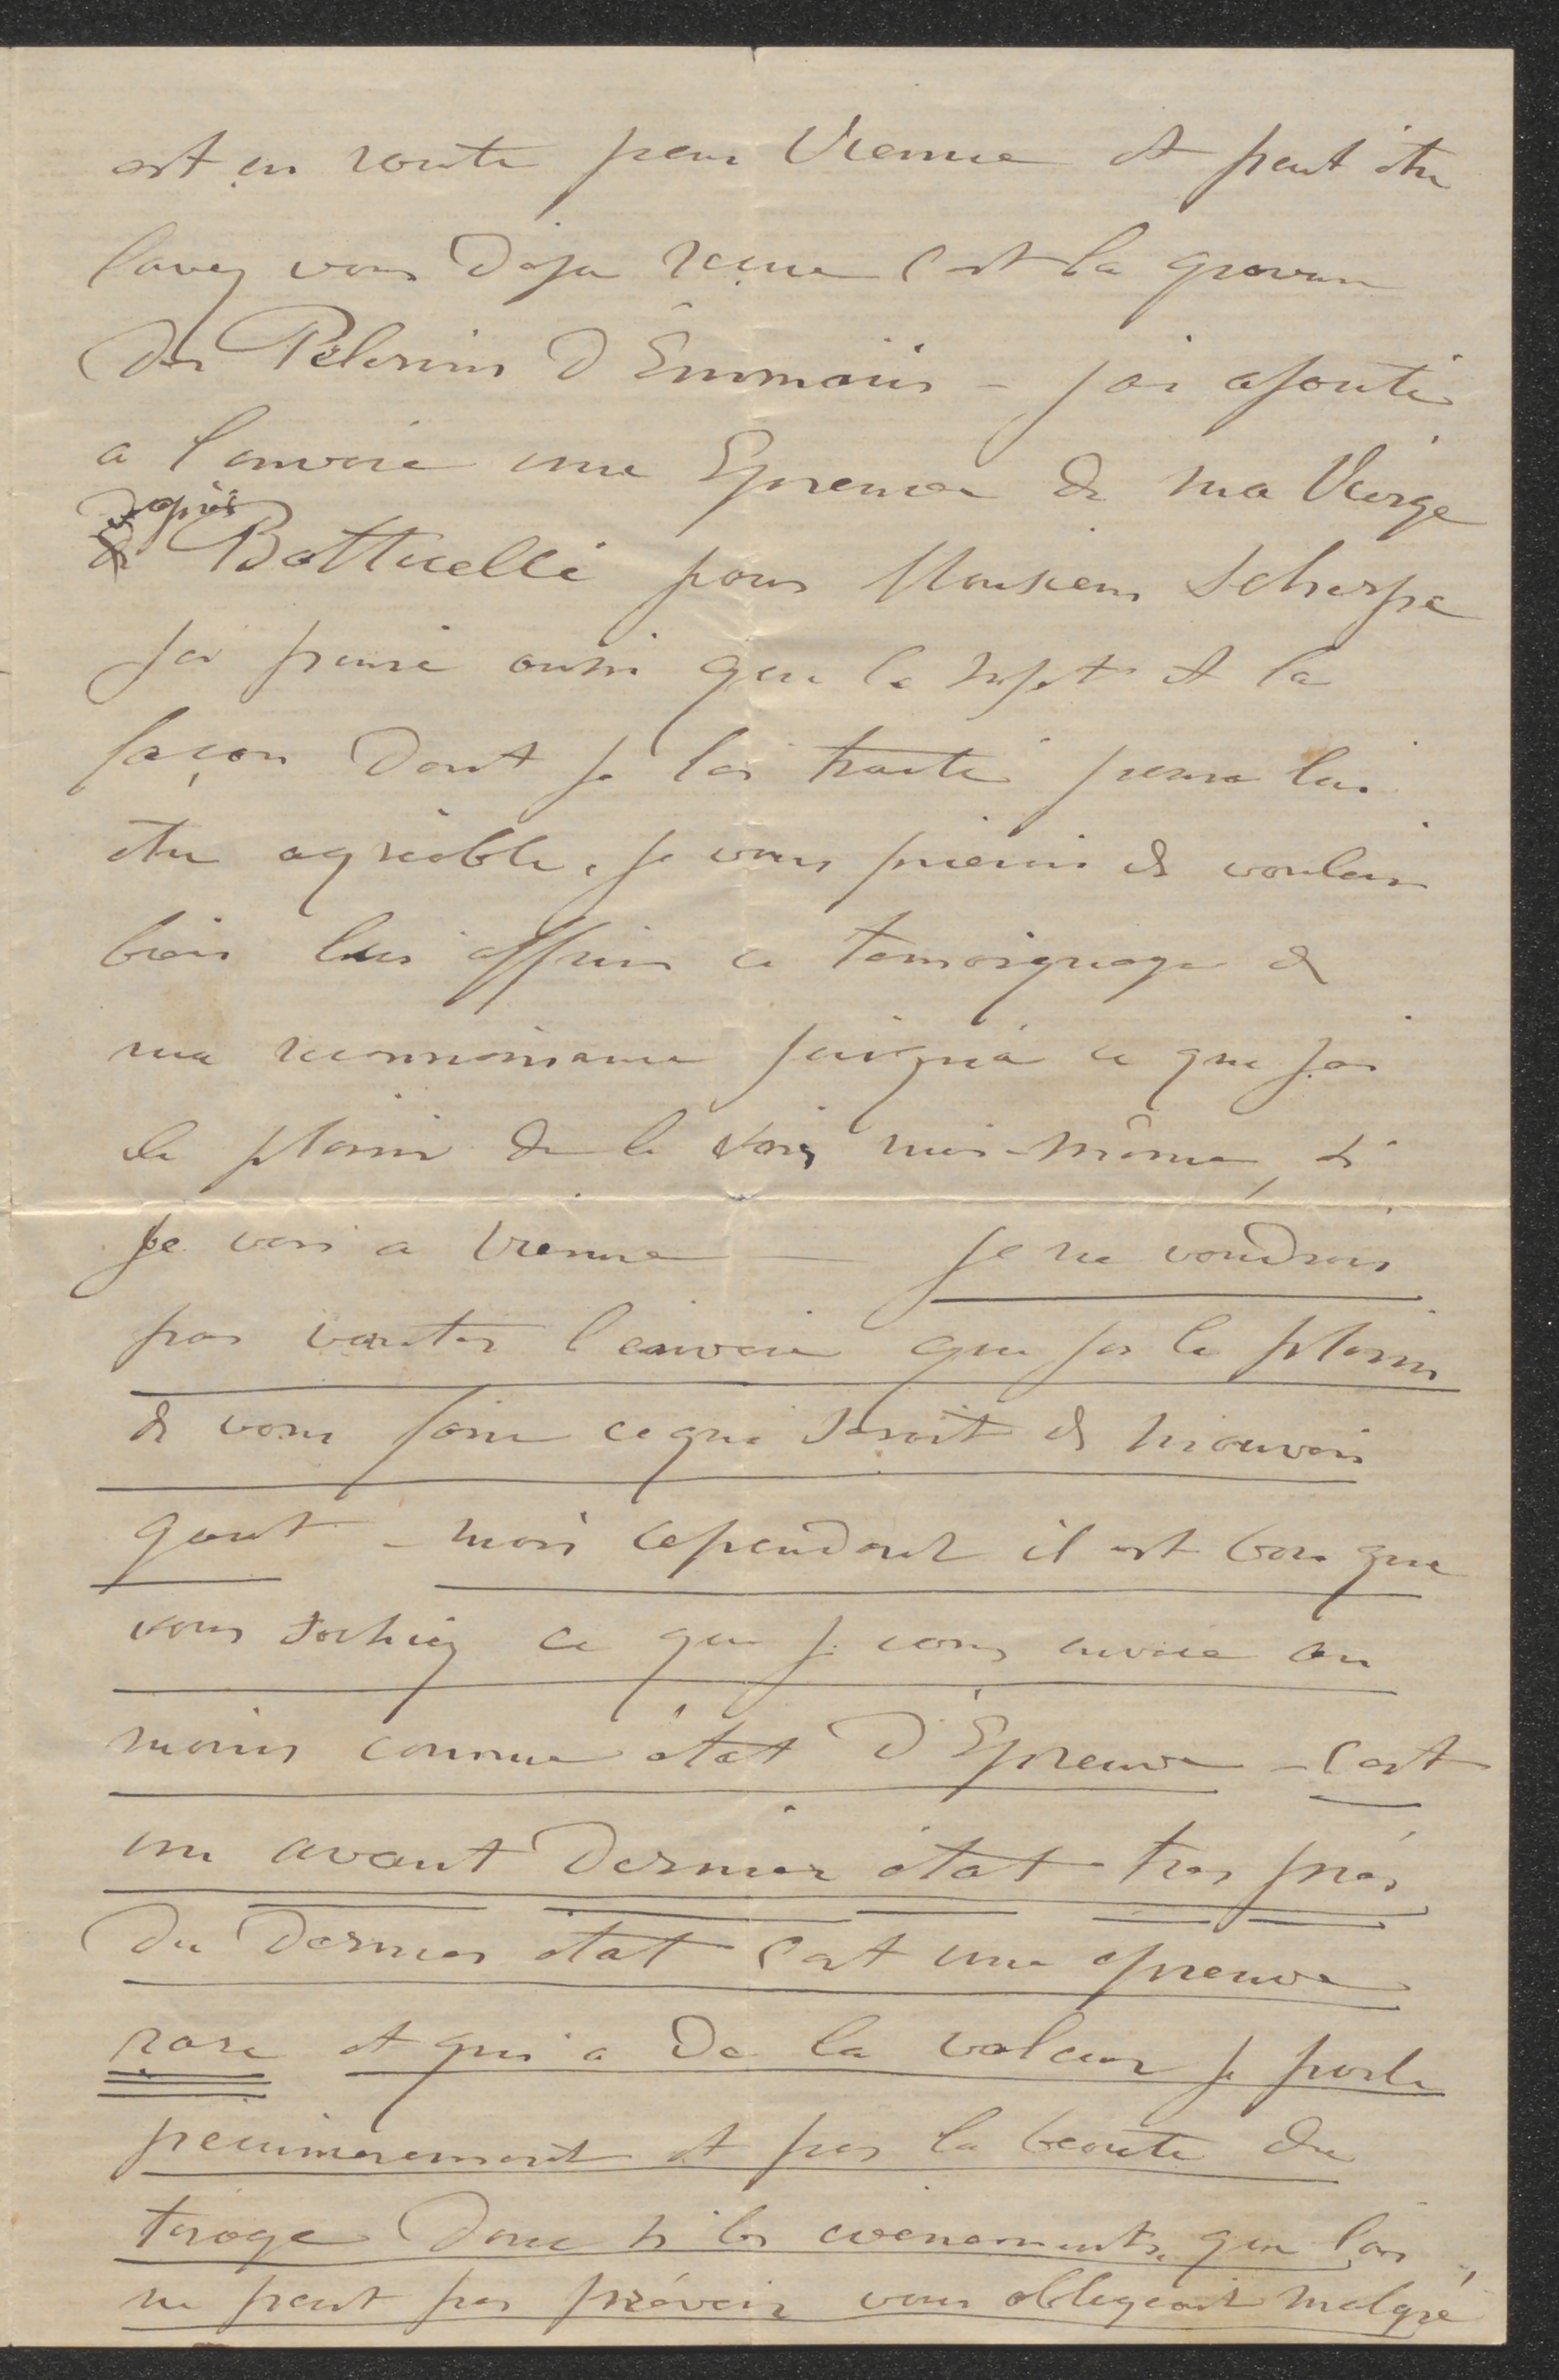 est en route pour Vienne et peut être
lavez vous Deja reçue c est la gravure
des Pélerins D Emmaüs - j ai ajouté
a l envoie une Epreuve de ma Vierge
d'après
Botticelli pour Monsieur Scharpe
jai pensé aussi que le sujet et la
façon Dont je lai traité pourra lui
être agréable, je vous prierais de vouloir
bien lui offrir ce temoignage de
ma reconnaissance jusqu'à ce que jai
le plaisir de le voir moi-même, si
je vais a Vienne — je ne voudrais
pas vanter l envoie que jai le plaisir
de vous faire ce qui serait de mauvais
gout - mais cependant il est bon que
vous sachiez ce que je vous envoie au
moins comme état D'Epreuve - c est
un avant Dernier état tres près
Du Dernier état c est une epreuve
rare et qui a De la valeur je parle
pecunierement et par la beauté du
tirage Donc si les evenements que l'on
ne peut pas prévoir vous obligeait malgré